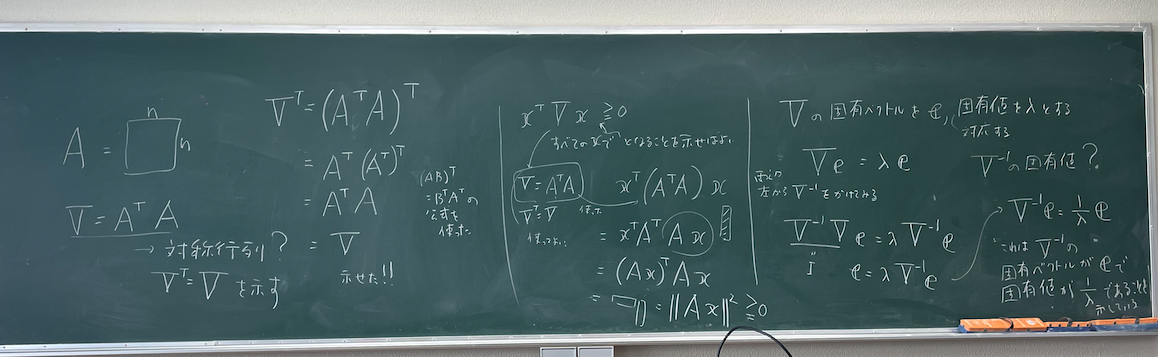 A = n n
V = AᵀA
→ 対称行列？
Vᵀ = V を示す
Vᵀ = (AᵀA)ᵀ
= Aᵀ(Aᵀ)ᵀ
= AᵀA
= V
示せた!!
(AB)ᵀ
= BᵀAᵀの
公式を
使った
xᵀVx ≧ 0
すべてのxで となることを示せばよい
V = AᵀA
Vᵀ = V
使ってよい
使った
xᵀ(AᵀA)x
= xᵀAᵀAx
= (Ax)ᵀAx
= ||Ax||² ≧ 0
Vの固有ベクトルをe, 固有値をλとする
対応する
Ve = λe
V⁻¹の固有値？
左から V⁻¹をかけてみる
V⁻¹Ve = λV⁻¹e
I
e = λV⁻¹e
V⁻¹e = 1/λ e
これは V⁻¹の
固有ベクトルがeで
固有値が 1/λ であることを
示している